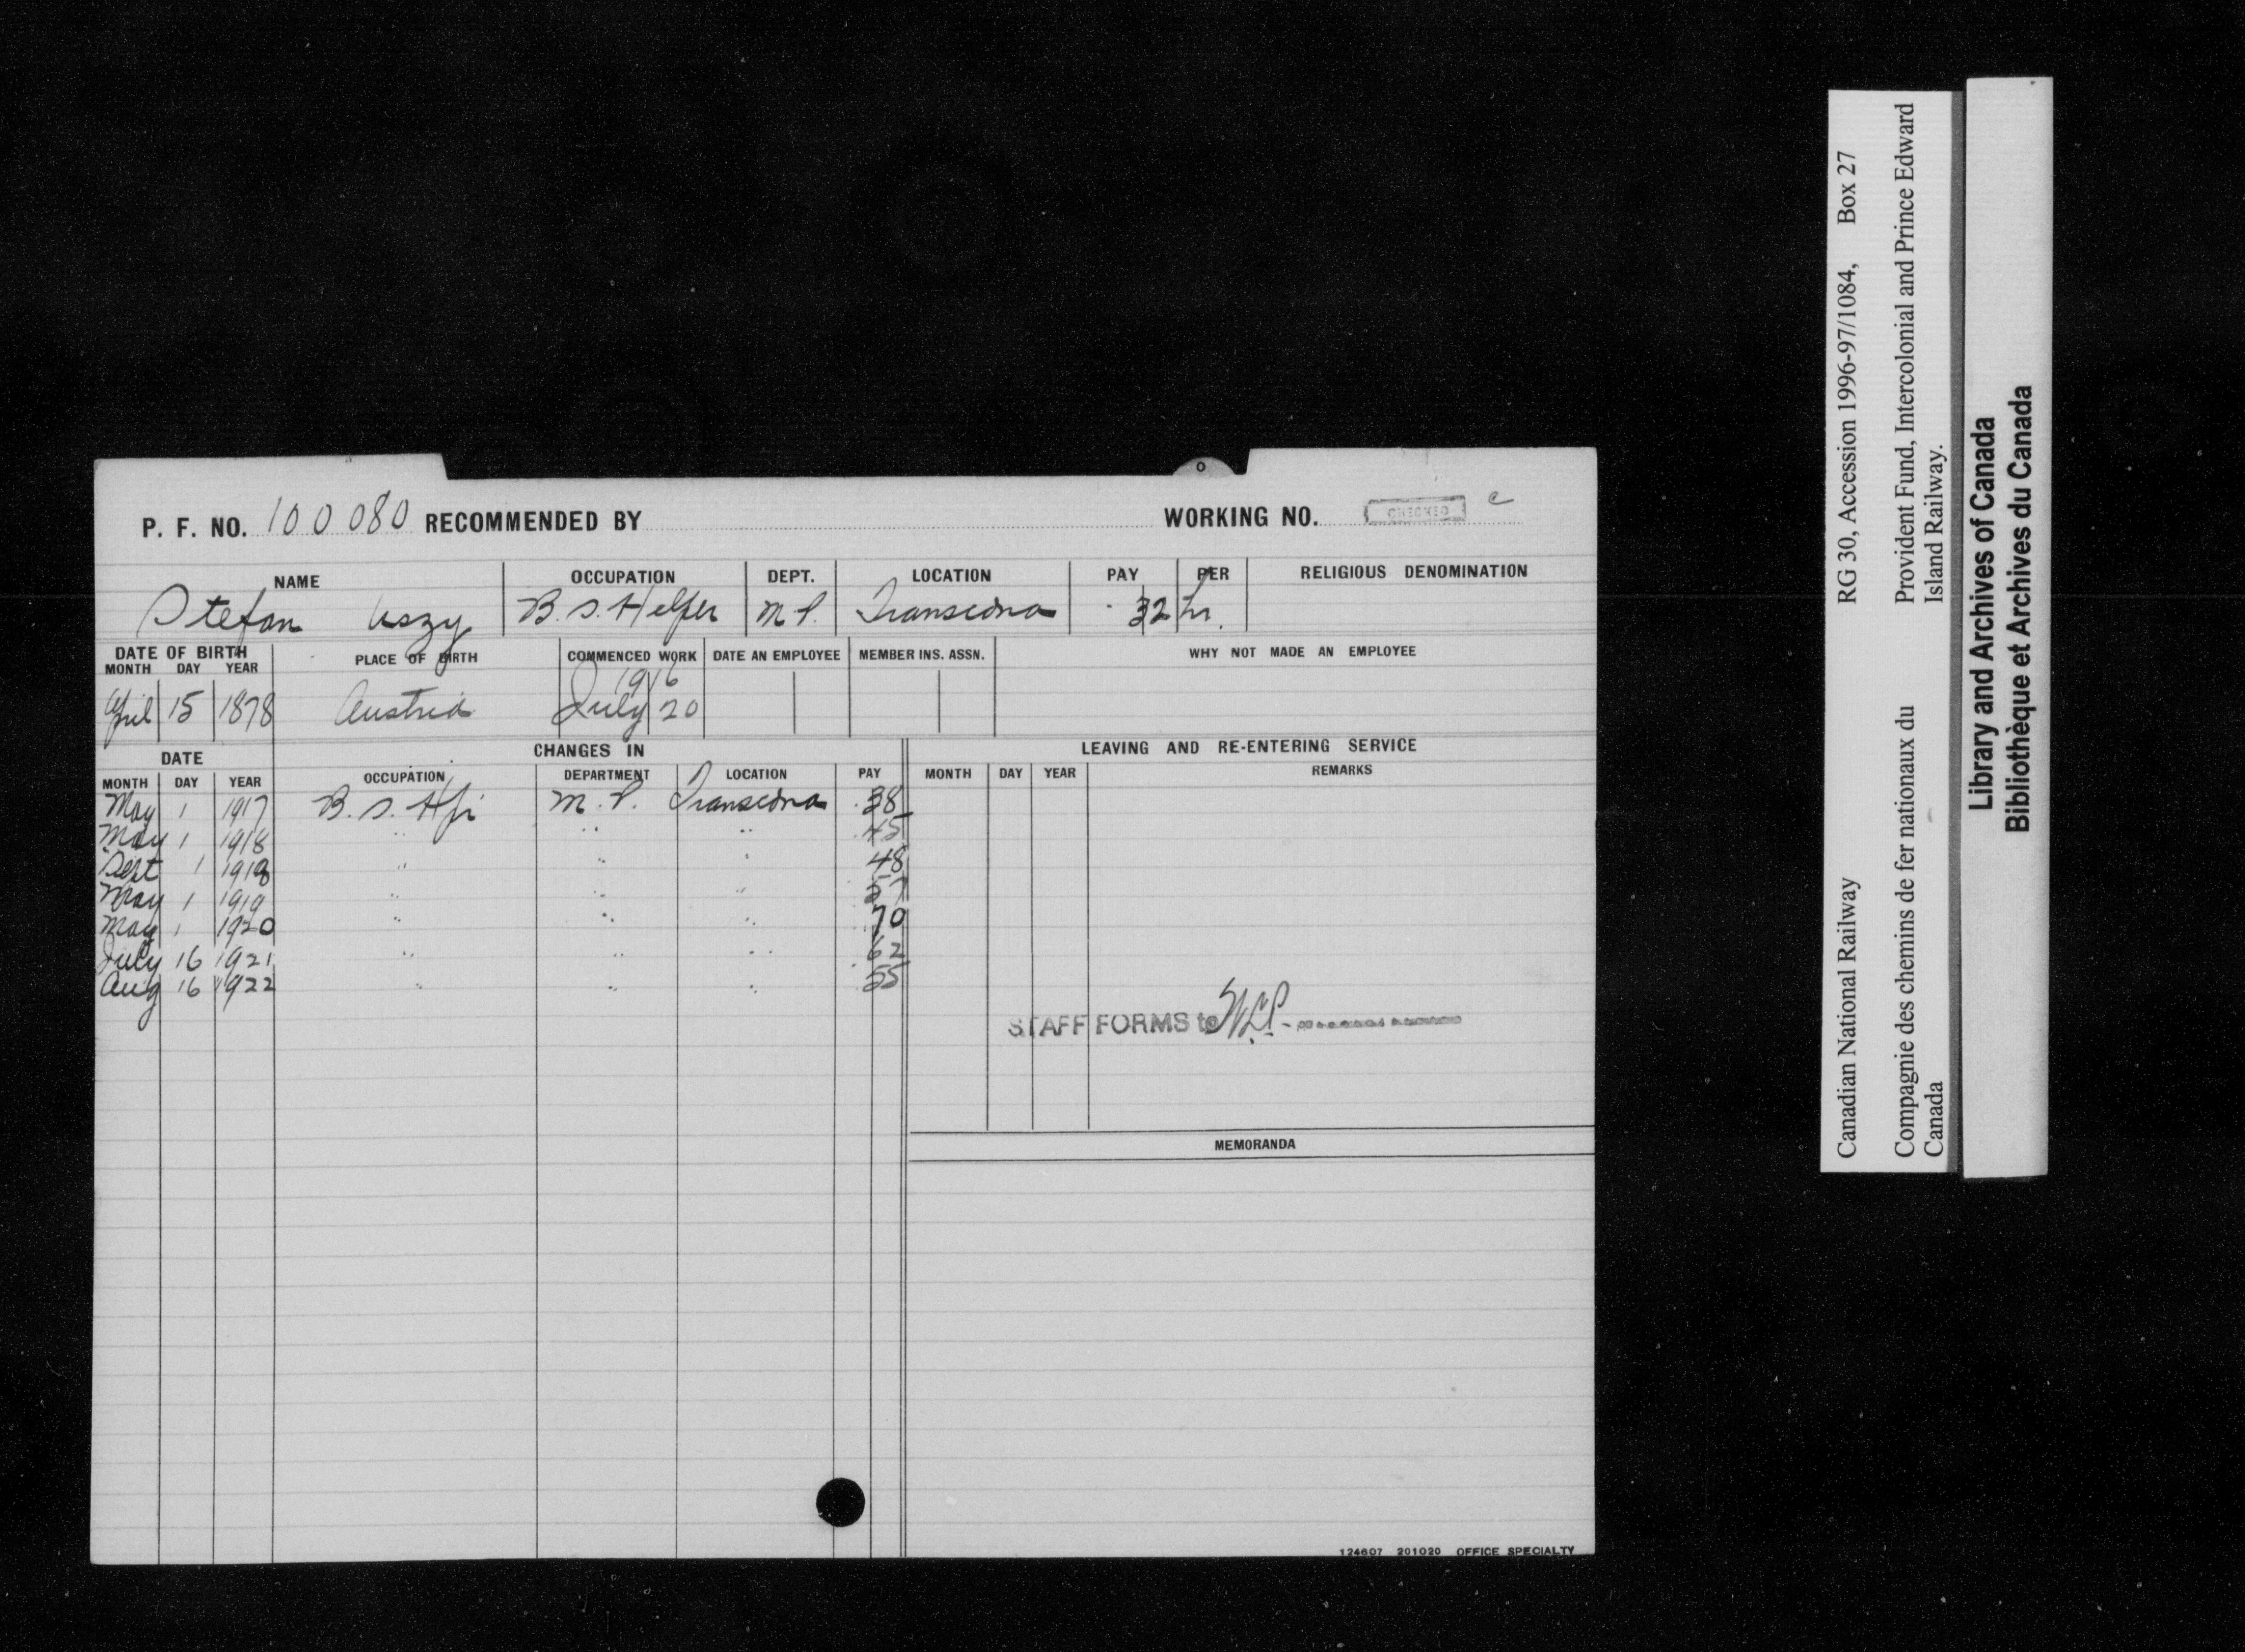 P. F. NO. 100080 RECOMMENDED BY WORKING NO. CHECKED c
NAME OCCUPATION DEPT. LOCATION PAY PER RELIGIOUS DENOMINATION
Stefan Uszy B. S. Helper M P. Transcona .32 hr.
DATE OF BIRTH
MONTH DAY YEAR PLACE OF BIRTH COMMENCED WORK DATE AN EMPLOYEE MEMBER INS. ASSN. WHY NOT MADE AN EMPLOYEE
1916
April 15 1878 Austria July 20
DATE CHANGES IN LEAVING AND RE-ENTERING SERVICE
MONTH DAY YEAR OCCUPATION DEPARTMENT LOCATION PAY MONTH DAY YEAR REMARKS
May 1 1917 B. S. Hpr M. P. Transcona .38
May 1 1918 " " " .45
Sept 1 1918 " " " 48
May 1 1919 " " "
May 1 1920 " " " 70
July 16 1921 " " " .62
Aug 16 1922 " " " .55
STAFF FORMS to
MEMORANDA
124607 201020 OFFICE SPECIALTY
Canadian National Railway RG 30, Accession 1996-97/1084, Box 27
Compagnie des chemins de fer nationaux du Provident Fund, Intercolonial and Prince Edward
Canada Island Railway.
Library and Archives of Canada
Bibliothèque et Archives du Canada